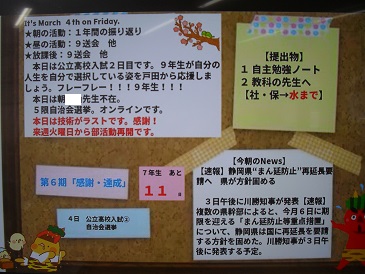 It's March 4th on Friday.
★朝の活動：１年間の振り返り
★昼の活動：９送会　他
★放課後：９送会　他
　本日は公立高校入試２日目です。９年生が自分の
人生を自分で選択している姿を戸田から応援しま
しょう。フレーフレー！！！９年生！！！
　本日は朝　　先生不在。
　５限自治会選挙。オンラインです。
　本日は技術がラストです。感謝！
　来週火曜日から部活動再開です。
【提出物】
１ 自主勉強ノート
２ 教科の先生へ
【社・保→水まで】
第６期「感謝・達成」
７年生　あと
１１日
４日　公立高校入試②
自治会選挙
【今朝のNews】
【速報】静岡県“まん延防止”再延長要
請へ　県が方針固める
　３日午後に川勝知事が発表【速報】
複数の県幹部によると、今月６日に期
限を迎える「まん延防止等重点措置」
について、静岡県は国に再延長を要
請する方針を固めた。川勝知事が３日午
後に発表する予定。